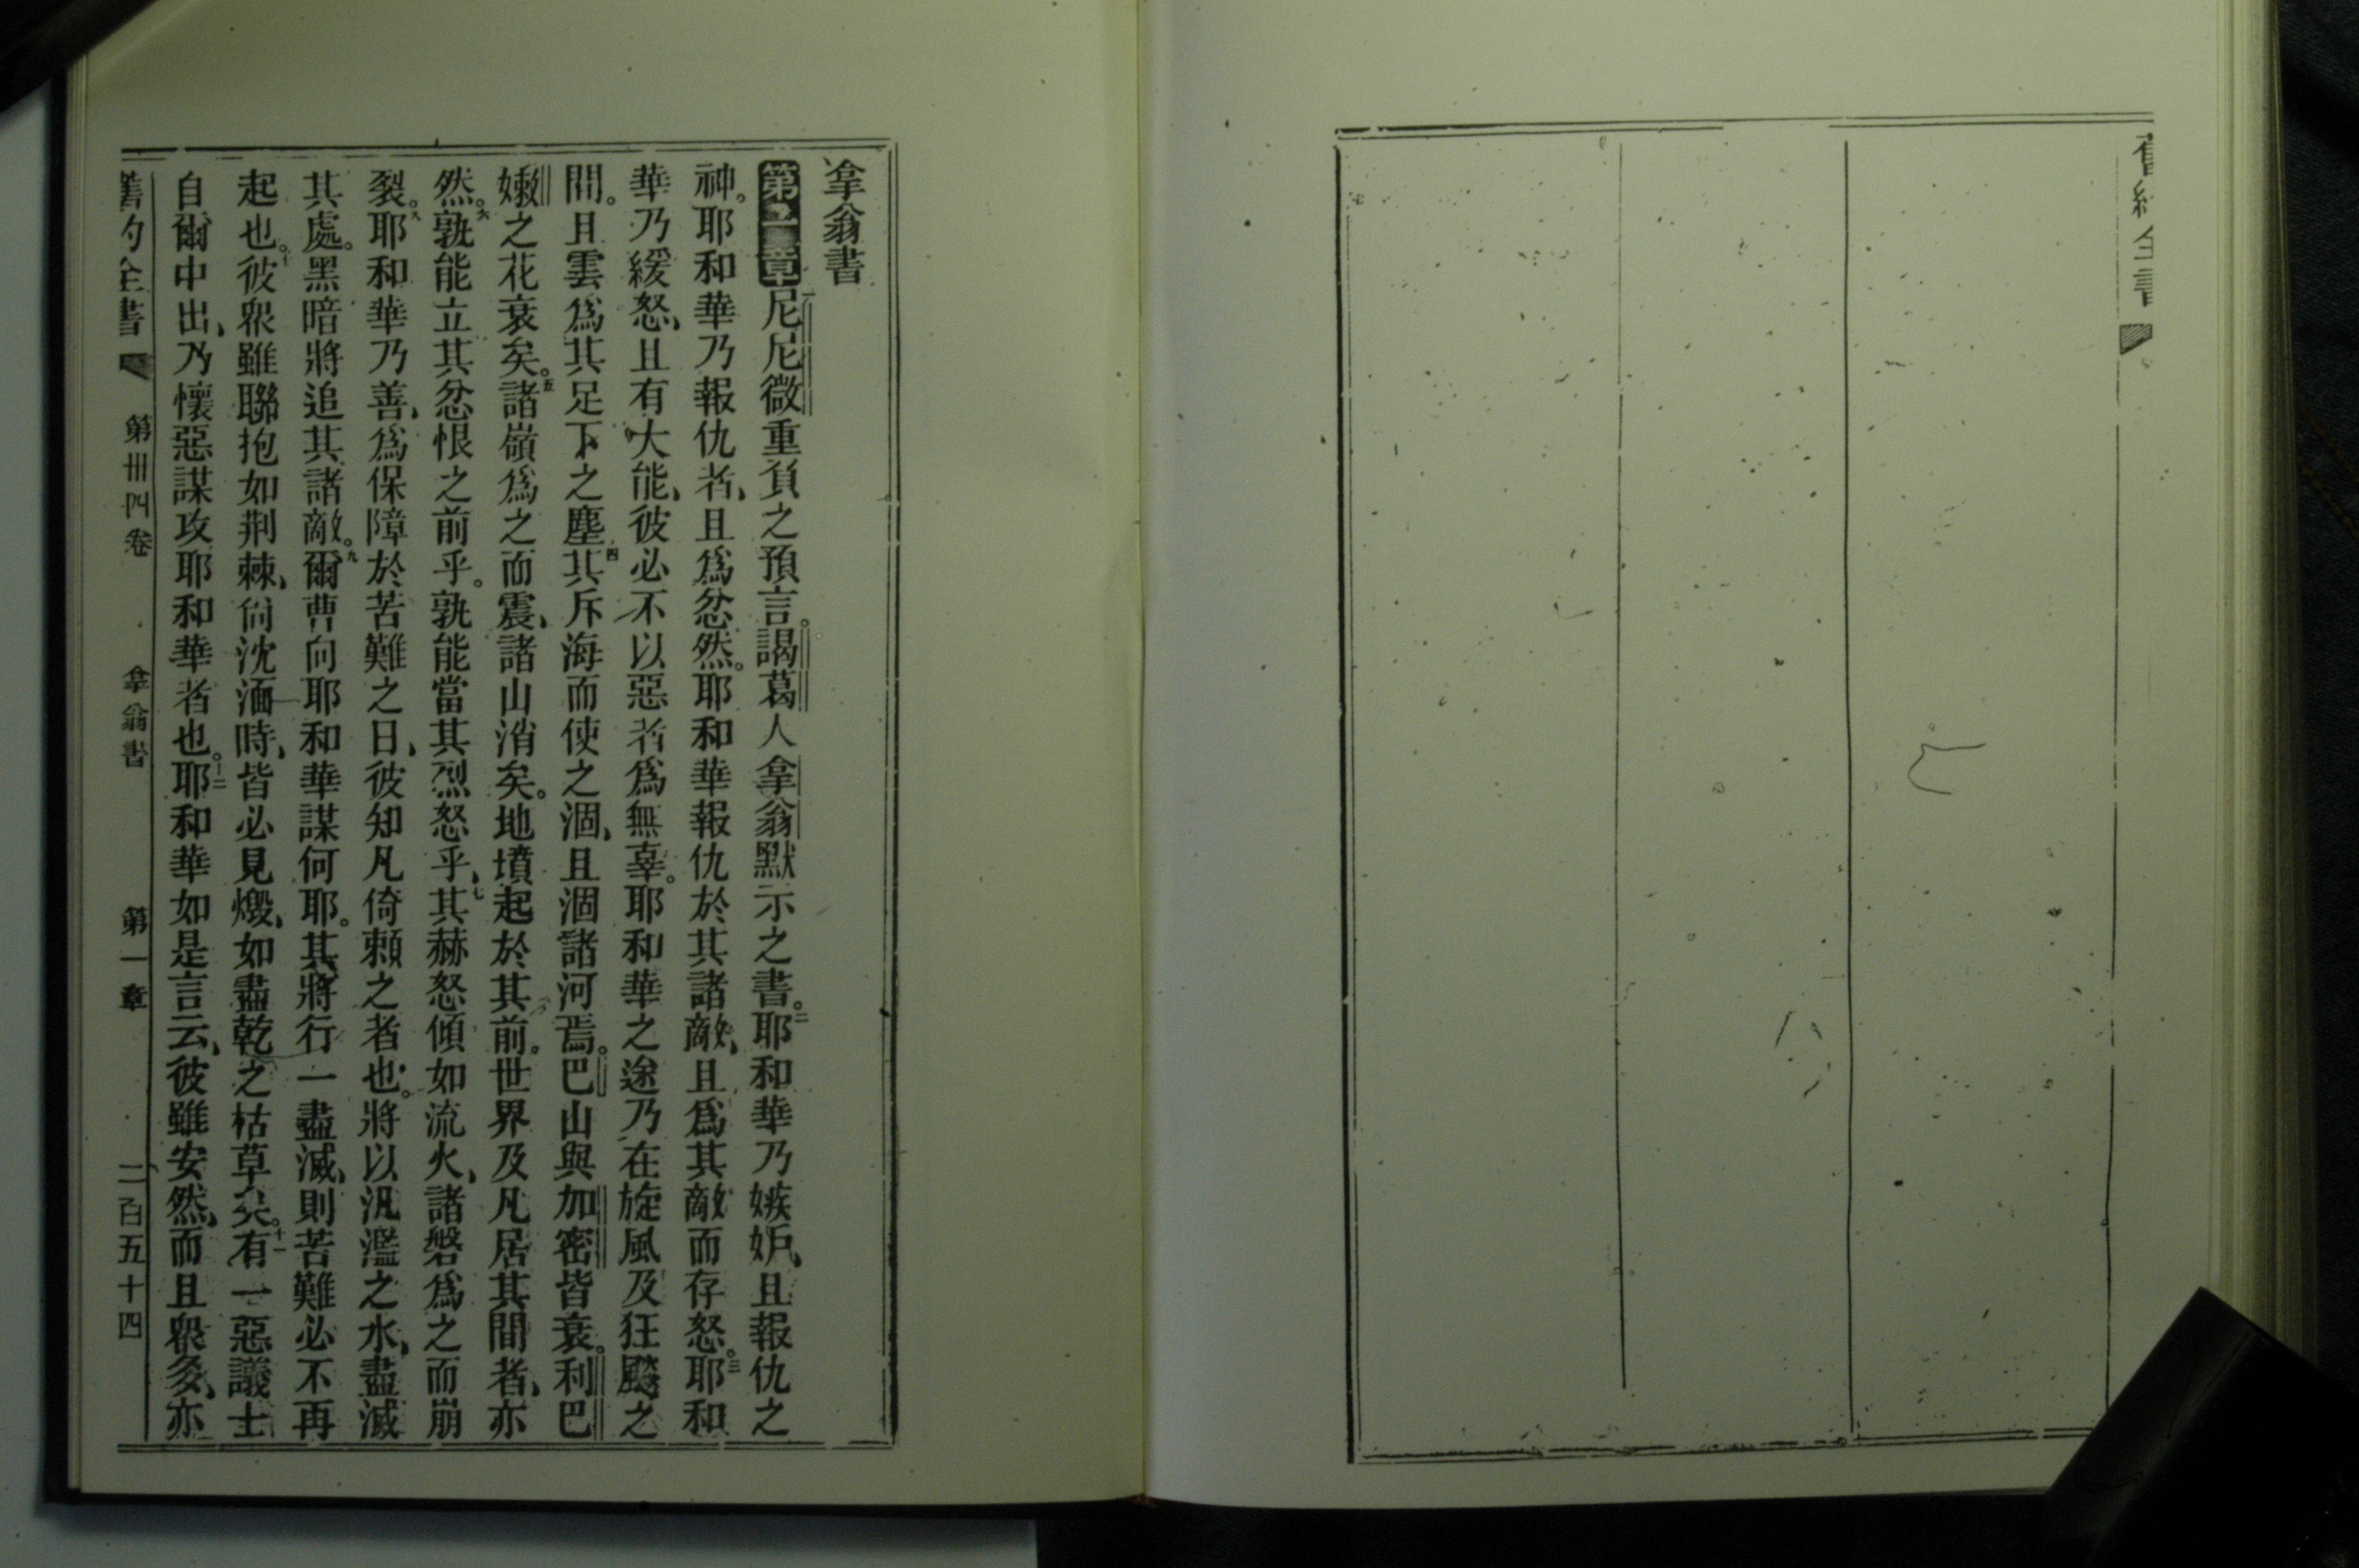 舊約全書
拿翁書
第一章尼尼微重負之預言。謁葛人拿翁默示之書。二耶和華乃嫉妒、且報仇之
神。耶和華乃報仇者、且爲忿然。耶和華報仇於其諸敵、且爲其敵而存怒。三耶和
華乃緩怒、且有大能、彼必不以惡者爲無辜。耶和華之途乃在旋風及狂飇之
間。且雲爲其足下之塵。四其斥海而使之涸、且涸諸河焉。巴山與加密皆衰。利巴
嫩之花衰矣。五諸嶺爲之而震、諸山消矣。地墳起於其前。世界及凡居其間者、亦
然。六孰能立其忿恨之前乎。孰能當其烈怒乎、七其赫怒傾如流火、諸磐爲之而崩
裂。八耶和華乃善、爲保障於苦難之日、彼知凡倚賴之者也。將以汎濫之水、盡滅
其處。黑暗將追其諸敵。九爾曹向耶和華謀何耶。其將行一盡滅、則苦難必不再
起也。十彼衆雖聯抱如荆棘、倘沈湎時、皆必見燬、如盡乾之枯草矣。十一有一惡議士
自爾中出、乃懷惡謀攻耶和華者也。十二耶和華如是言云、彼雖安然、而且衆多、亦
舊約全書 第卅四卷 拿翁書 第一章 二百五十四